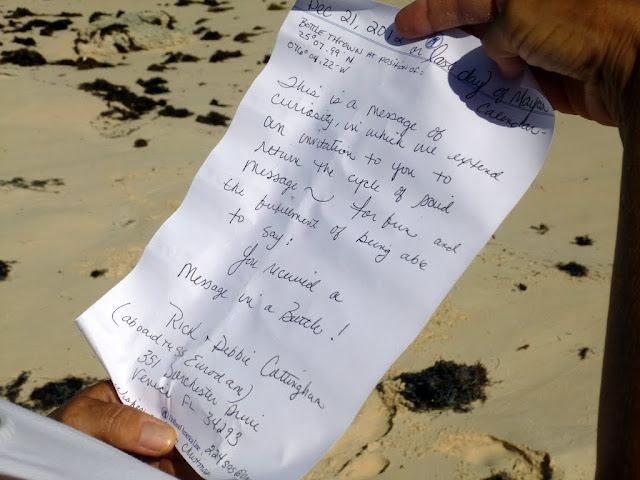 Dec 21, 2012 or (last day) of Mayan
Calendar-
BOTTLE THROWN AT POSITION OF:
25° 07.99 N
076° 04.22 W
This is a message of
curiosity, in which we extend
an invitation to you to
return the cycle of said
message ~ for fun and
the fulfillment of being able
to say!
You received a
Message in a Bottle!
Rick + Debbie Cattingham
(aboard ms Eurodam)
351 Dorchester Drive
Venice FL 34293